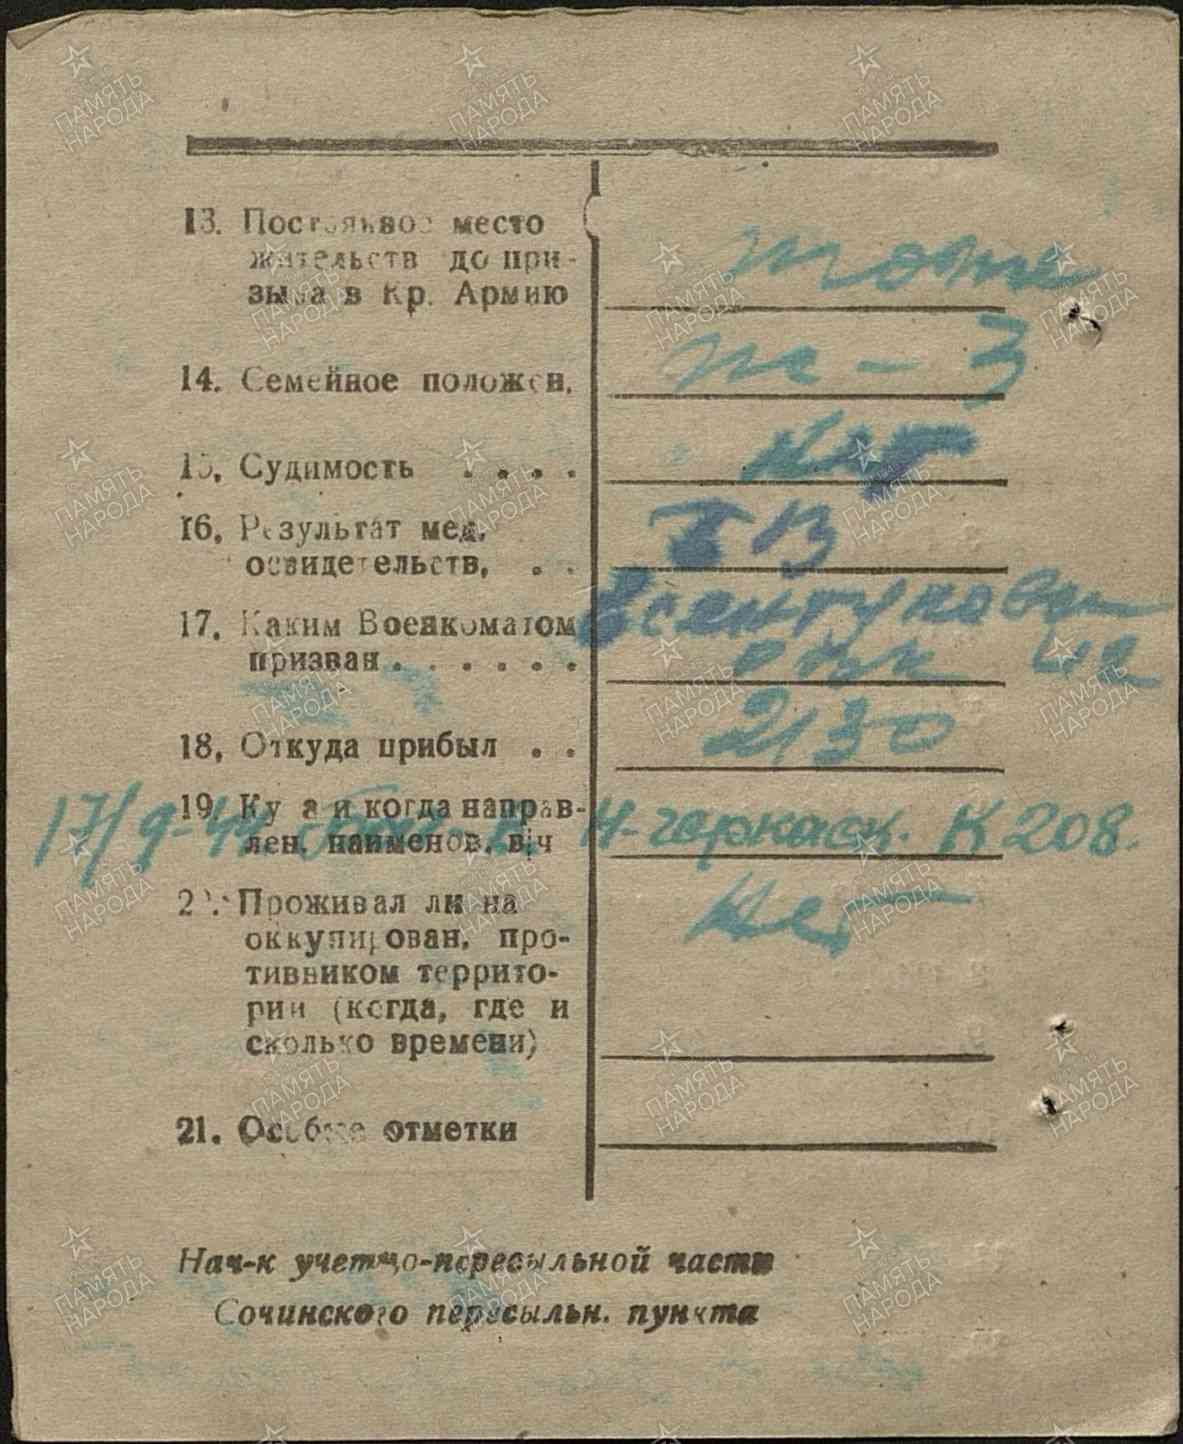 13. Постоянное место
жительств до при-
зыва в Кр. Армию
тоже
14. Семейное положен.
ж - 3
15. Судимость . . . .
Нет
16. Результат мед.
освидетельств. . .
17. Каким Военкоматом
призван . . . . . .
18. Откуда прибыл . .
2130
19. Куда и когда направ-
лен. наименов. в/ч
17/9-44 Н-черкасск. К 208.
20. Проживал ли на
оккупирован. про-
тивником террито-
рии (когда, где и
сколько времени)
Нет
21. Особые отметки
Нач-к учетно-пересыльной части
Сочинского пересыльн. пункта
ПАМЯТЬ
НАРОДА